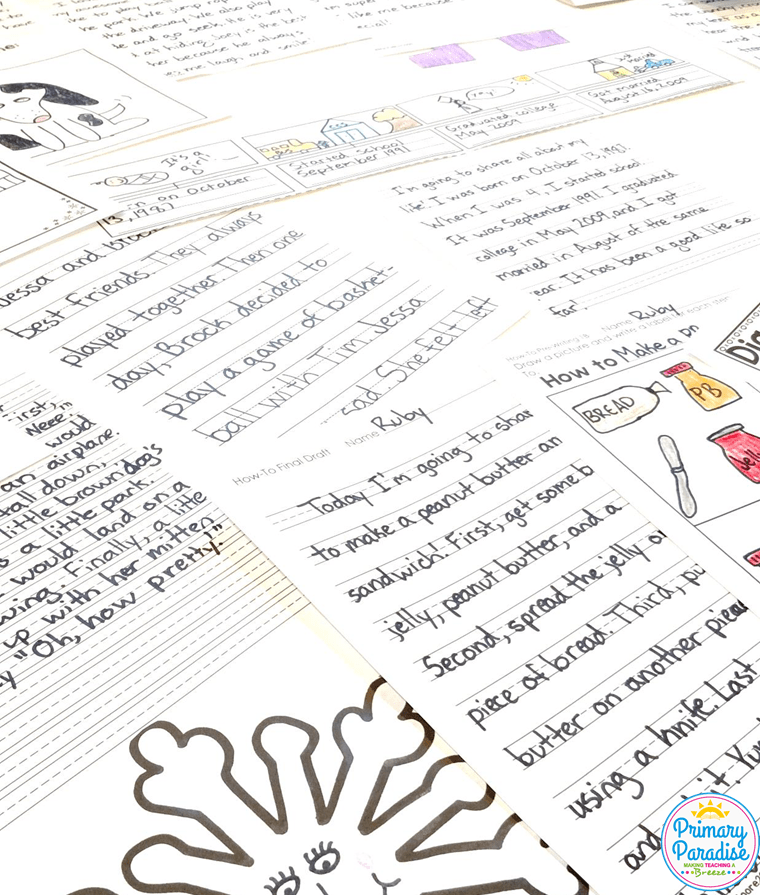 to play
the park. We jump rope
the driveway. We also play
and go seek. He is very
at hiding. Joey is the best
her because he always
me laugh and smile
like me because
It's a
girl
on October
13, 1987
Started school
September 1991
Yay
Graduated college
May 2009
Got married
August 16, 2009
I'm going to share all about my
life! I was born on October 13, 1987.
When I was 4, I started school.
It was September 1991. I graduated
college in May 2009, and I got
married in August of the same
year. It has been a good life so
far!
Jessa and
best friends. They always
played together. Then one
day, Brock decided to
play a game of basket-
ball with Tim. Jessa
sad. She felt left
First,
would
an airplane.
fall down,
little brown dog's
a little park.
would land on a
Finally, a little
up with her mitten
"Oh, how pretty."
How-To Pre-writing
Name Ruby
Draw a picture and write a label for each step.
To
How to Make a
BREAD
PB
Jelly
How-To Final Draft
Name Ruby
Today I'm going to shar
to make a peanut butter an
sandwich! First, get some b
jelly, peanut butter, and a
Second, spread the jelly o
piece of bread. Third, pu
butter on another piec
using a knife. Last
and it. Yum
and
Primary
Paradise
MAKING TEACHING A
Breeze